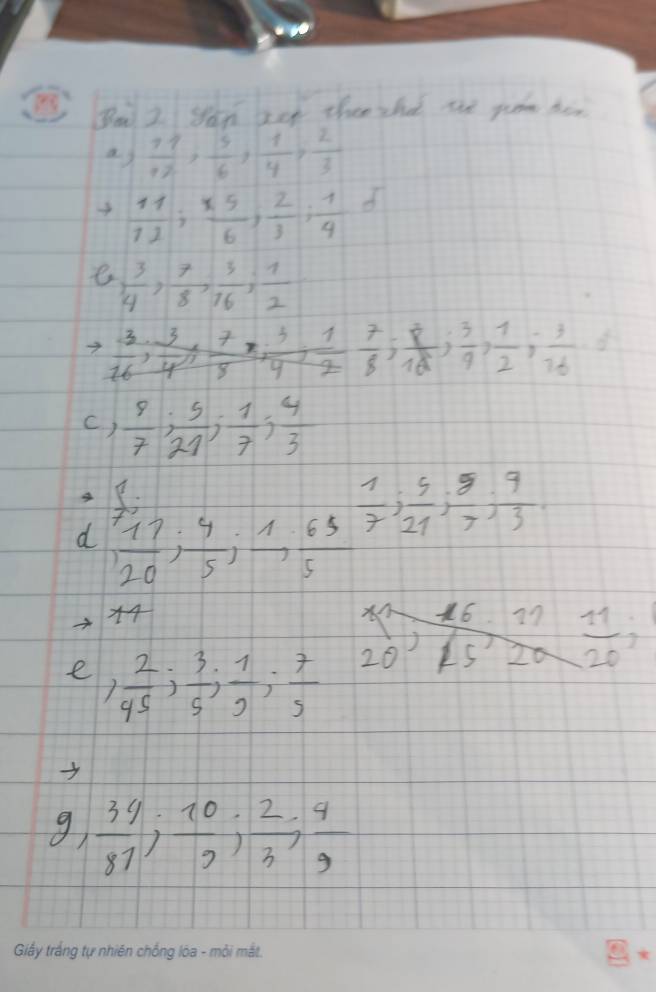 Bài 2 Sắp xếp theo thứ tự giảm dần
a, 11/12; 5/6; 1/4; 2/3
→ 11/12; 5/6; 2/3; 1/4
b, 3/4; 7/8; 3/16; 1/2
→ 3/16; 3/4; 7/8; 3/4; 1/2 7/8; 3/4; 1/2; 3/16
c, 8/7; 5/21; 1/7; 4/3
→ 1/7; 1/7; 5/21; 8/7; 4/3
d, 11/20; 4/5; 1; 6/5
→ 11 11/20; 16/15; 11/20 11/20;
e, 2/45; 3/5; 1/9; 7/5
→
g, 34/81; 10/9; 2/3; 4/9
Giấy trắng tự nhiên chống lóa - mỏi mắt.